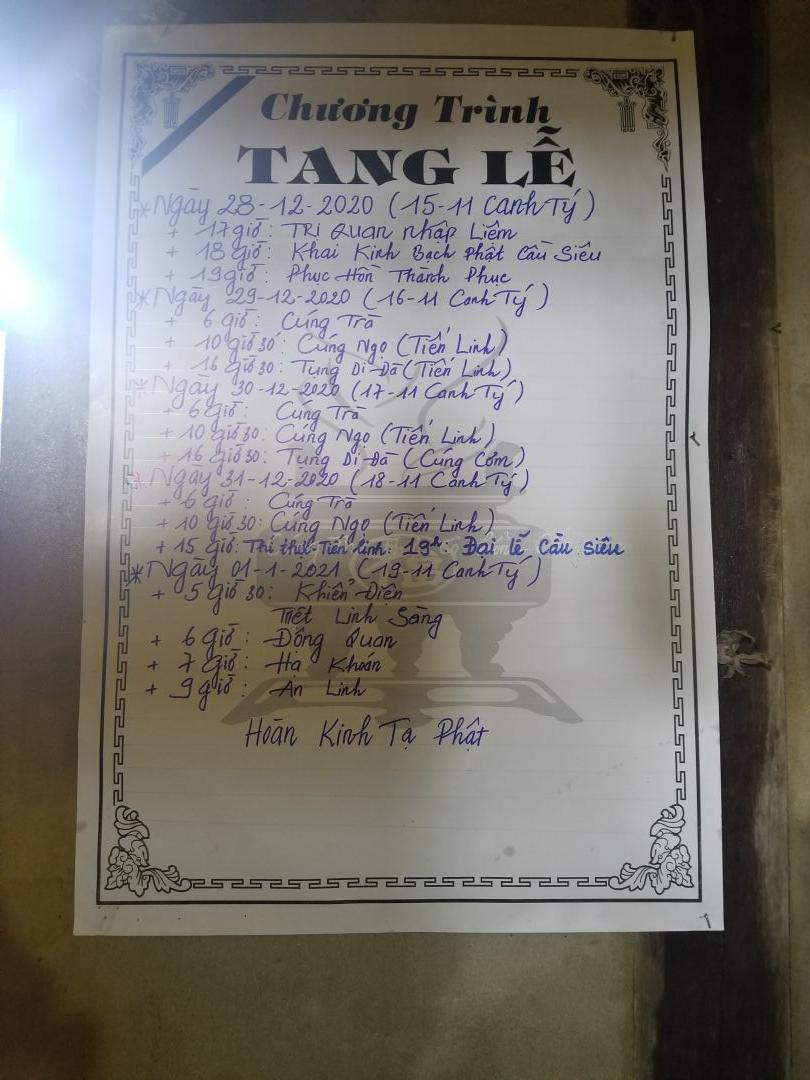 Chương Trình
TANG LỄ
* Ngày 28-12-2020 (15-11 Canh Tý)
+ 17 giờ: Trị Quan nhập Liệm
+ 18 giờ: Khai Kinh Bạch Phật Cầu Siêu
+ 19 giờ: Phục Hồn Thành Phục
* Ngày 29-12-2020 (16-11 Canh Tý)
+ 6 giờ: Cúng Trà
+ 10 giờ 30: Cúng Ngọ (Tiến Linh)
+ 16 giờ 30: Tụng Di Đà (Tiến Linh)
* Ngày 30-12-2020 (17-11 Canh Tý)
+ 6 giờ: Cúng Trà
+ 10 giờ 30: Cúng Ngọ (Tiến Linh)
+ 16 giờ 30: Tụng Di Đà (Cúng Cơm)
* Ngày 31-12-2020 (18-11 Canh Tý)
+ 6 giờ: Cúng Trà
+ 10 giờ 30: Cúng Ngọ (Tiến Linh)
+ 15 giờ: Thí thực Tiến linh: 19h: Đại lễ Cầu Siêu
* Ngày 01-1-2021 (19-11 Canh Tý)
+ 5 giờ 30: Khiển Điện
Triệt Linh Sàng
+ 6 giờ: Động Quan
+ 7 giờ: Hạ Khoán
+ 9 giờ: An Linh
Hoàn Kinh Tạ Phật